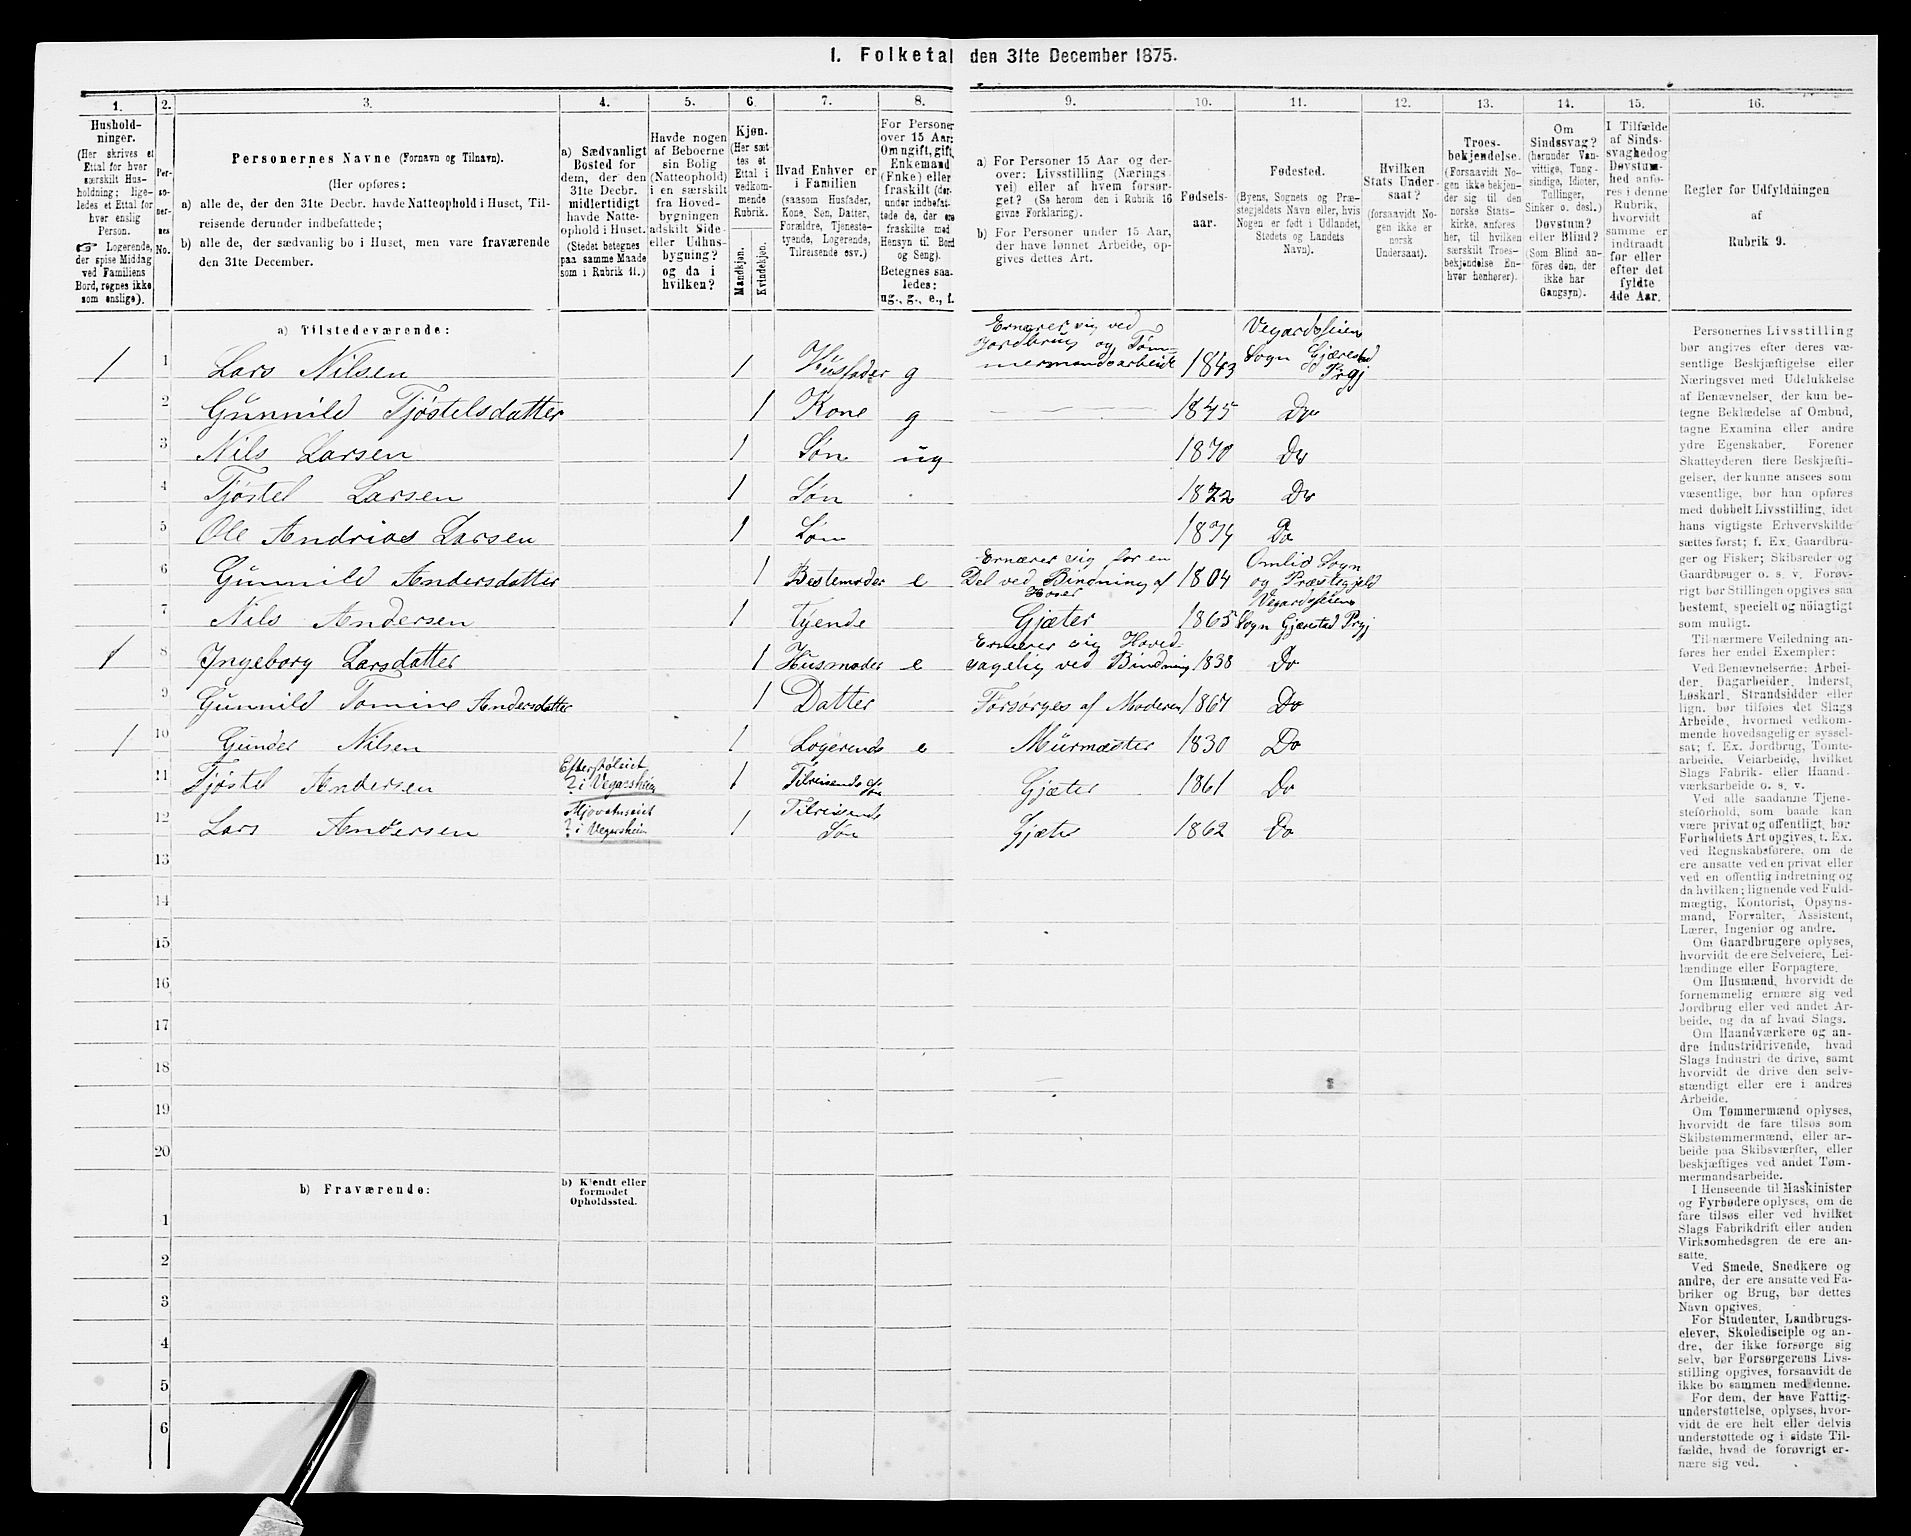 I. Folketal den 31te December 1875.
1. 2. 3. 4. 5. 6. 7. 8. 9. 10. 11. 12. 13. 14. 15. 16.
Hushold-
ninger.
(Her skrives et
Ettal for hver
særskilt Hus-
holdning; lige-
ledes et Ettal for
hver enslig
Person.
☞ Logerende,
der spise Middag
ved Familiens
Bord, regnes ikke
som enslige).
Per-
so-
ner-
nes
No.
Personernes Navne (Fornavn og Tilnavn).
(Her opføres:
a) alle de, der den 31te Decbr. havde Natteophold i Huset, Til-
reisende derunder indbefattede;
b) alle de, der sædvanlig bo i Huset, men vare fraværende
den 31te December.
a) Sædvanligt
Bosted for
dem, der den
31te Decbr.
midlertidigt
havde Natte-
ophold i Huset.
(Stedet betegnes
paa samme Maade
som i Rubrik 11.)
Havde nogen
af Beboerne
sin Bolig
(Natteophold)
i en særskilt
fra Hoved-
bygningen
adskilt Side-
eller Udhus-
bygning?
og da i
hvilken?
Kjøn.
(Her sæt
tes et
Ettal i
vedkom-
mende
Rubrik.
Mandkjøn.
Kvindekjøn.
Hvad Enhver er
i Familien
(saasom Husfader,
Kone, Søn, Datter,
Forældre, Tjeneste-
tyende, Logerende,
Tilreisende osv.)
For Personer
over 15 Aar:
Om ugift, gift,
Enkemand
(Enke) eller
fraskilt (der-
under indbefat-
tede de, der ere
fraskilte med
Hensyn til Bord
og Seng).
Betegnes saa-
ledes:
ug., g., e., f.
a) For Personer 15 Aar og der-
over: Livsstilling (Nærings-
vei) eller af hvem forsør-
get? (Se herom den i Rubrik 16
givne Forklaring).
b) For Personer under 15 Aar,
der have lønnet Arbeide, op-
gives dettes Art.
Fødsels-
aar.
Fødested.
(Byens, Sognets og Præ-
stegjeldets Navn eller, hvis
Nogen er født i Udlandet,
Stedets og Landets
Navn).
Hvilken
Stats Under-
saat?
(forsaavidt No-
gen ikke er
norsk
Undersaat).
Troes-
bekjendelse.
(Forsaavidt No-
gen ikke bekjen-
der sig til den
norske Stats-
kirke, anføres
her, til hvilken
særskilt Troes-
bekjendelse En-
hver henhører).
Om
Sindssvag?
(herunder Van-
vittige, Tung-
sindige, Idioter,
Tullinger,
Sinker o. desl.)
Døvstum?
eller Blind?
(Som Blind an-
føres den, der
ikke har
Gangsyn).
I Tilfælde
af Sinds-
svaghed og
Døvstum-
hed anfø-
res i denne
Rubrik,
hvorvidt
samme er
indtraadt
før eller
efter det
fyldte
4de Aar.
Regler for Udfyldningen
af
Rubrik 9.
a) Tilstedeværende:
1 1 Lars Nilsen 1 Husfader g Ernærer sig ved Jordbrug og Tømmermandsarbeide 1843 Vegardsheien Sogn Gjærestad Prgj
2 Gunnild Tjøstelsdatter 1 Kone g 1845 Do
3 Nils Larsen 1 Søn ug 1870 Do
4 Tjøstel Larsen 1 Søn 1872 Do
5 Ole Andrias Larsen 1 Søn 1874 Do
6 Gunnild Andersdatter 1 Bestemoder e Ernærer sig for en Del ved Bindning af Hoser 1804 Omlid Sogn og Præstegjeld
7 Nils Andersen 1 Tyende Gjæter 1865 Vegardsheien Sogn Gjærestad Prgj
1 8 Ingeborg Larsdatter 1 Husmoder e Ernærer sig Hovedsagelig ved Bindning 1838 Do
9 Gunnild Tomine Andersdatter 1 Datter Forsørges af Moderen 1867 Do
1 10 Gunder Nilsen 1 Logerende e Mürmæster 1830 Do
11 Tjøstel Andersen ? i Vegarsheien 1 Tilreisende Søn Gjæter 1861 Do
12 Lars Andersen ? i Vegarsheien 1 Tilreisende Søn Gjæter 1862 Do
13
14
15
16
17
18
19
20
b) Fraværende:
b) Kjendt eller
formodet
Opholdssted.
1
2
3
4
5
6
Personernes Livsstilling
bør angives efter deres væ-
sentlige Beskjæftigelse eller
Næringsvei med Udelukkelse
af Benævnelser, der kun be-
tegne Beklædelse af Ombud,
tagne Examina eller andre
ydre Egenskaber. Forener
Skatteyderen flere Beskjæfti-
gelser, der kunne ansees som
væsentlige, bør han opføres
med dobbelt Livsstilling, idet
hans vigtigste Erhvervskilde
sættes først; f. Ex. Gaardbru-
ger og Fisker; Skibsreder og
Gaardbruger o. s. v. Forøv-
rigt bør Stillingen opgives saa
bestemt, specielt og nöiagtigt
som muligt.
Til nærmere Veiledning an-
føres her endel Exempler:
Ved Benævnelserne: Arbei-
der, Dagarbeider, Inderst,
Løskarl, Strandsidder eller
lign. bør tilføies det Slags
Arbeide, hvormed vedkom-
mende hovedsagelig er syssel-
sat; f. Ex. Jordbrug, Tomte-
arbeide, Veiarbeide, hvilket
Slags Fabrik- eller Haand-
værksarbeide o. s. v.
Ved alle saadanne Tjene-
steforhold, som baade kan
være privat og offentligt, bør
Forholdets Art opgives, t. Ex.
ved Regnskabsførere, om de
ere ansatte ved en privat eller
ved en offentlig indretning og
da hvilken; lignende ved Fuld-
mægtig, Kontorist, Opsyns-
mand, Forvalter, Assistent,
Lærer, Ingeniør og andre.
Om Gaardbrugere oplyses,
hvorvidt de ere Selveiere, Lei-
lændinge eller Forpagtere.
Om Husmænd, hvorvidt de
fornemmelig ernære sig ved
Jordbrug eller ved andet Ar-
beide, og da af hvad Slags.
Om Haandværkere og an-
dre Industridrivende, hvad
Slags Industri de drive, samt
hvorvidt de drive den selv-
stændigt eller ere i andres
Arbeide.
Om Tømmermænd oplyses,
hvorvidt de fare tilsøs som
Skibstømmermænd, eller ar-
beide paa Skibsværfter, eller
beskjæftiges ved andet Tøm-
mermandsarbeide.
I Henseende til Maskinister
og Fyrbødere oplyses, om de
fare tilsøs eller ved hvilket
Slags Fabrikdrift eller anden
Virksomhedsgren de ere an-
satte.
Ved Smede, Snedkere og
andre, der ere ansatte ved Fa-
briker og Brug, bør dettes
Navn opgives.
For Studenter, Landbrugs-
elever, Skoledisciple og an-
dre, der ikke forsørge sig
selv, bør Forsørgerens Livs-
stilling opgives, forsaavidt de
ikke bo sammen med denne.
For dem, der have Fattig-
understøttelse, oplyses, hvor-
vidt de ere helt eller delvis
understøttede og i sidste Til-
fælde, hvad de forøvrigt er-
nære sig ved.